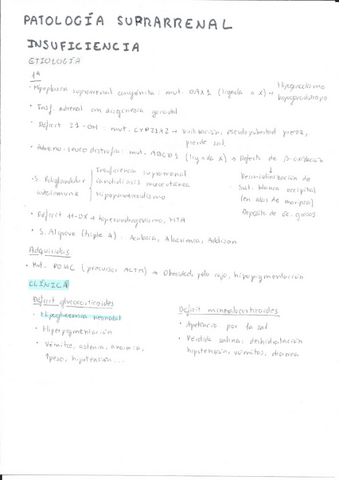 PATOLOGÍA SUPRARRENAL
INSUFICIENCIA
ETIOLOGÍA
1ª
· Hipoplasia suprarrenal congénita: mut. DAX1 (ligada a X) → Hipogonadismo
hipogonadotropo
· Insf. adrenal con disgenesia gonadal
· Déficit 21-OH: mut. CYP21A2 → Virilización, pseudopubertad precoz,
pierde sal.
· Adreno-leuco distrofia: mut. ABCD1 (ligada X) → Defecto de β-oxidación
↓
Desmielinización de
sust. blanca occipital
(en alas de mariposa)
Depósito de ác. grasos
· S. Poliglandular
autoinmune
Insuficiencia suprarrenal
candidiasis mucocutánea
Hipoparatiroidismo
· Déficit 11-OH → hiperandrogenismo, HTA
· S. Allgrove (triple A): Acalasia, Alacrimia, Addison
Adquiridos
· Mut. POMC (precursor ACTH) → Obesidad, pelo rojo, hipopigmentación
CLÍNICA
Déficit glucocorticoides
· Hipoglucemia neonatal
· Hiperpigmentación
· Vómitos, astenia, anorexia,
↓peso, hipotensión...
Déficit mineralocorticoides
· Apetencia por la sal
· Pérdida salina: deshidratación
hipotensión, vómitos, diarrea